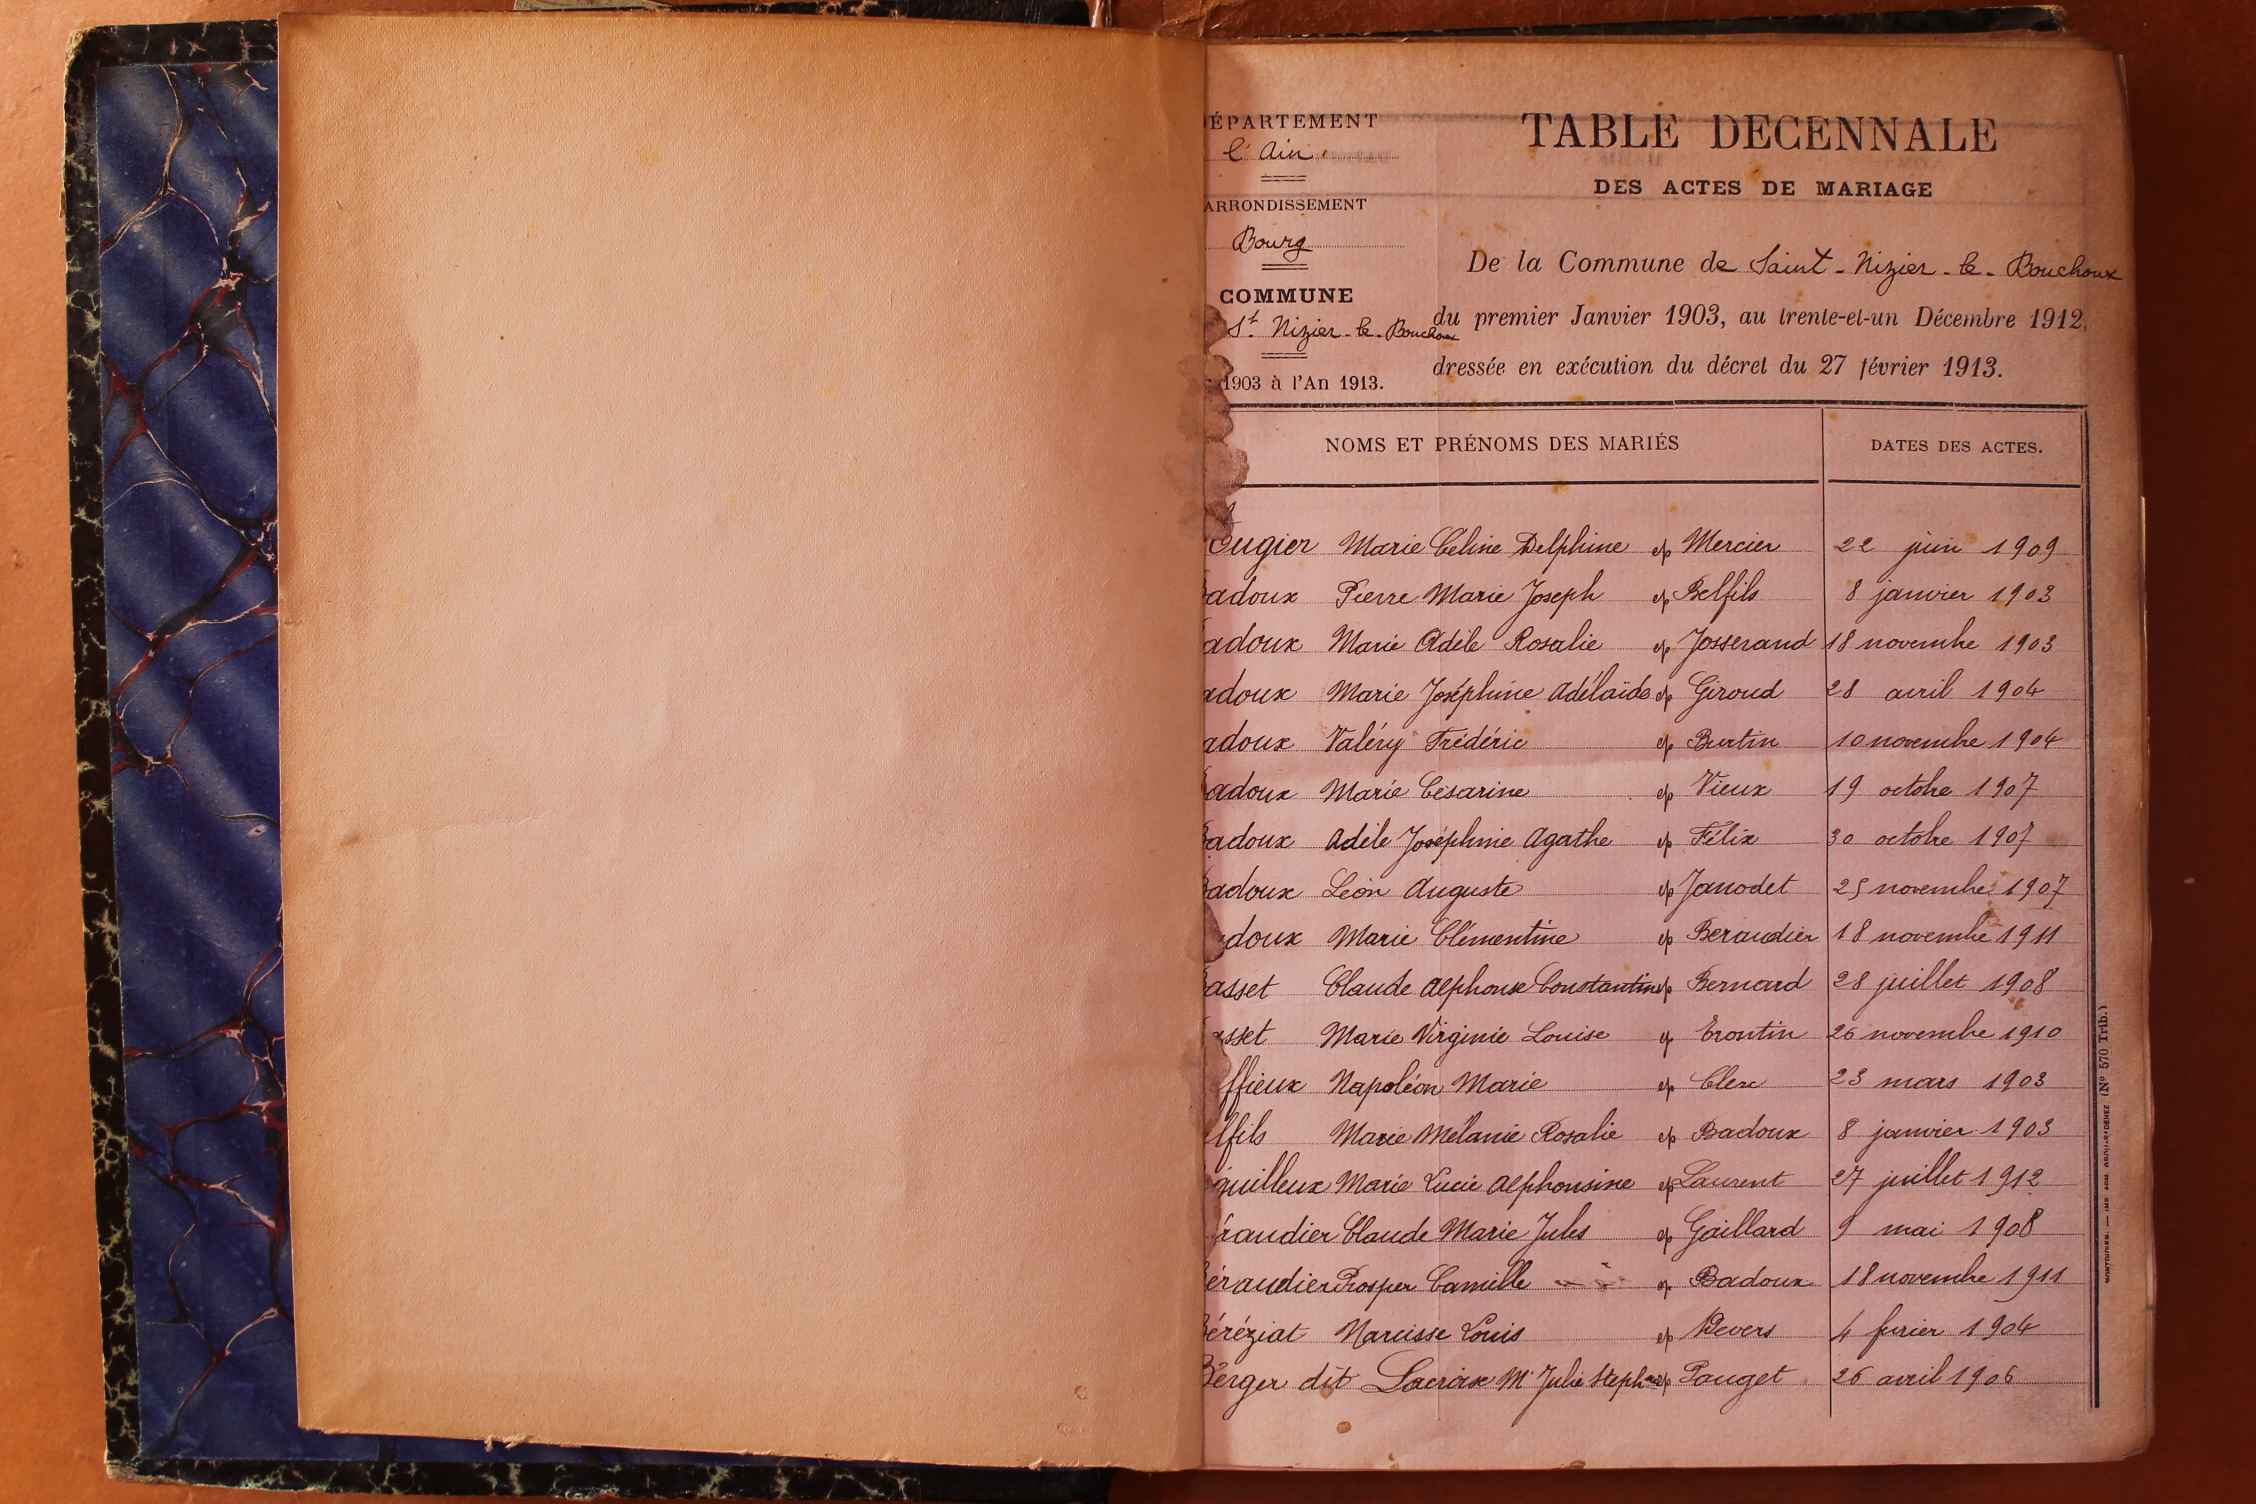 ÉPARTEMENT
l'Ain
ARRONDISSEMENT
Bourg
COMMUNE
St Nizier-le-Bouchoux
1903 à l'An 1913.
TABLE DECENNALE
DES ACTES DE MARIAGE
De la Commune de Saint-Nizier-le-Bouchoux
du premier Janvier 1903, au trente-et-un Décembre 1912,
dressée en exécution du décret du 27 février 1913.
NOMS ET PRÉNOMS DES MARIÉS DATES DES ACTES.
ugier Marie Céline Delphine ép Mercier 22 juin 1909
adoux Pierre Marie Joseph ép Belfils 8 janvier 1903
adoux Marie Adèle Rosalie ép Josserand 18 novembre 1903
adoux Marie Joséphine Adélaïde ép Giroud 28 avril 1904
adoux Valéry Frédéric ép Burtin 10 novembre 1904
adoux Marie Césarine ép Vieux 19 octobre 1907
adoux Adèle Joséphine Agathe ép Félix 30 octobre 1907
Badoux Léon Auguste ép Janodet 25 novembre 1907
doux Marie Clémentine ép Beraudier 18 novembre 1911
asset Claude Alphonse Constantin ép Bernard 28 juillet 1908
asset Marie Virginie Louise ép 26 novembre 1910
ffieux Napoléon Marie ép Clerc 23 mars 1903
lfils Marie Mélanie Rosalie ép Badoux 8 janvier 1903
guilleux Marie Lucie Alphonsine ép Laurent 27 juillet 1912
raudier Claude Marie Jules ép Gaillard 9 mai 1908
éraudier Prosper Camille ép Badoux 18 novembre 1911
éréziat Narcisse Louis ép Revers 4 février 1904
Berger dit Lacroix Me Julie Steph ép Pauget 26 avril 1906
(N° 570 Trib.)